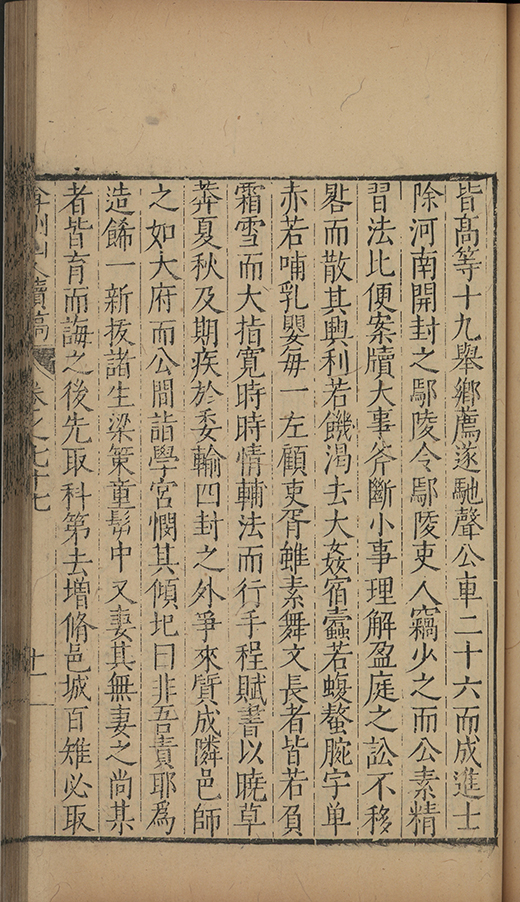 皆髙等十九舉鄉薦遂馳聲公車二十六而成進士
除河南開封之鄢陵令鄢陵吏人竊少之而公素精
習法比便案牘大事斧斷小事理解盈庭之訟不移
晷而散其興利若饑渴去大姦宿蠹若蝮螫腕字单
赤若哺乳嬰每一左顧吏胥雖素舞文長者皆若負
霜雪而大指寬時時情輔法而行手程賦書以曉草
莽夏秋及期疾於委輸四封之外爭來質成隣邑師
之如大府而公間詣學宮憫其傾圮曰非吾責耶爲
造餙一新拔諸生梁策童髫中又妻其無妻之尚某
者皆育而誨之後先取科第去增脩邑城百雉必取
弇州山人續稿 卷之七十七 十一